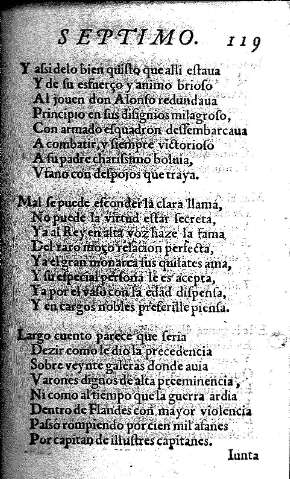 SEPTIMO. 119
Y assi delo bien quisto que alli estaua
Y de su esfuerço y animo brioso
Al jouen don Alonso redundaua
Principio en sus disignios milagroso,
Con armado esquadron dessembarcaua
A combatir, y siempre victorioso
A su padre charissimo boluia,
Vfano con despojos que traya.
Mal se puede esconder la clara llama,
No puede la virtud estar secreta,
Ya al Rey en alta voz haze la fama
Del raro moço relacion perfecta,
Ya el gran monarca sus quilates ama,
Y su especial persona le es acepta,
Ya por el vaso con la edad dispensa,
Y en cargos nobles preferille piensa.
Largo cuento parece que seria
Dezir como le dio la precedencia
Sobre veynte galeras donde auia
Varones dignos de alta preeminencia,
Ni como al tiempo que la guerra ardia
Dentro de Flandes con mayor violencia
Passo rompiendo por cien mil afanes
Por capitan de illustres capitanes.
Iunta